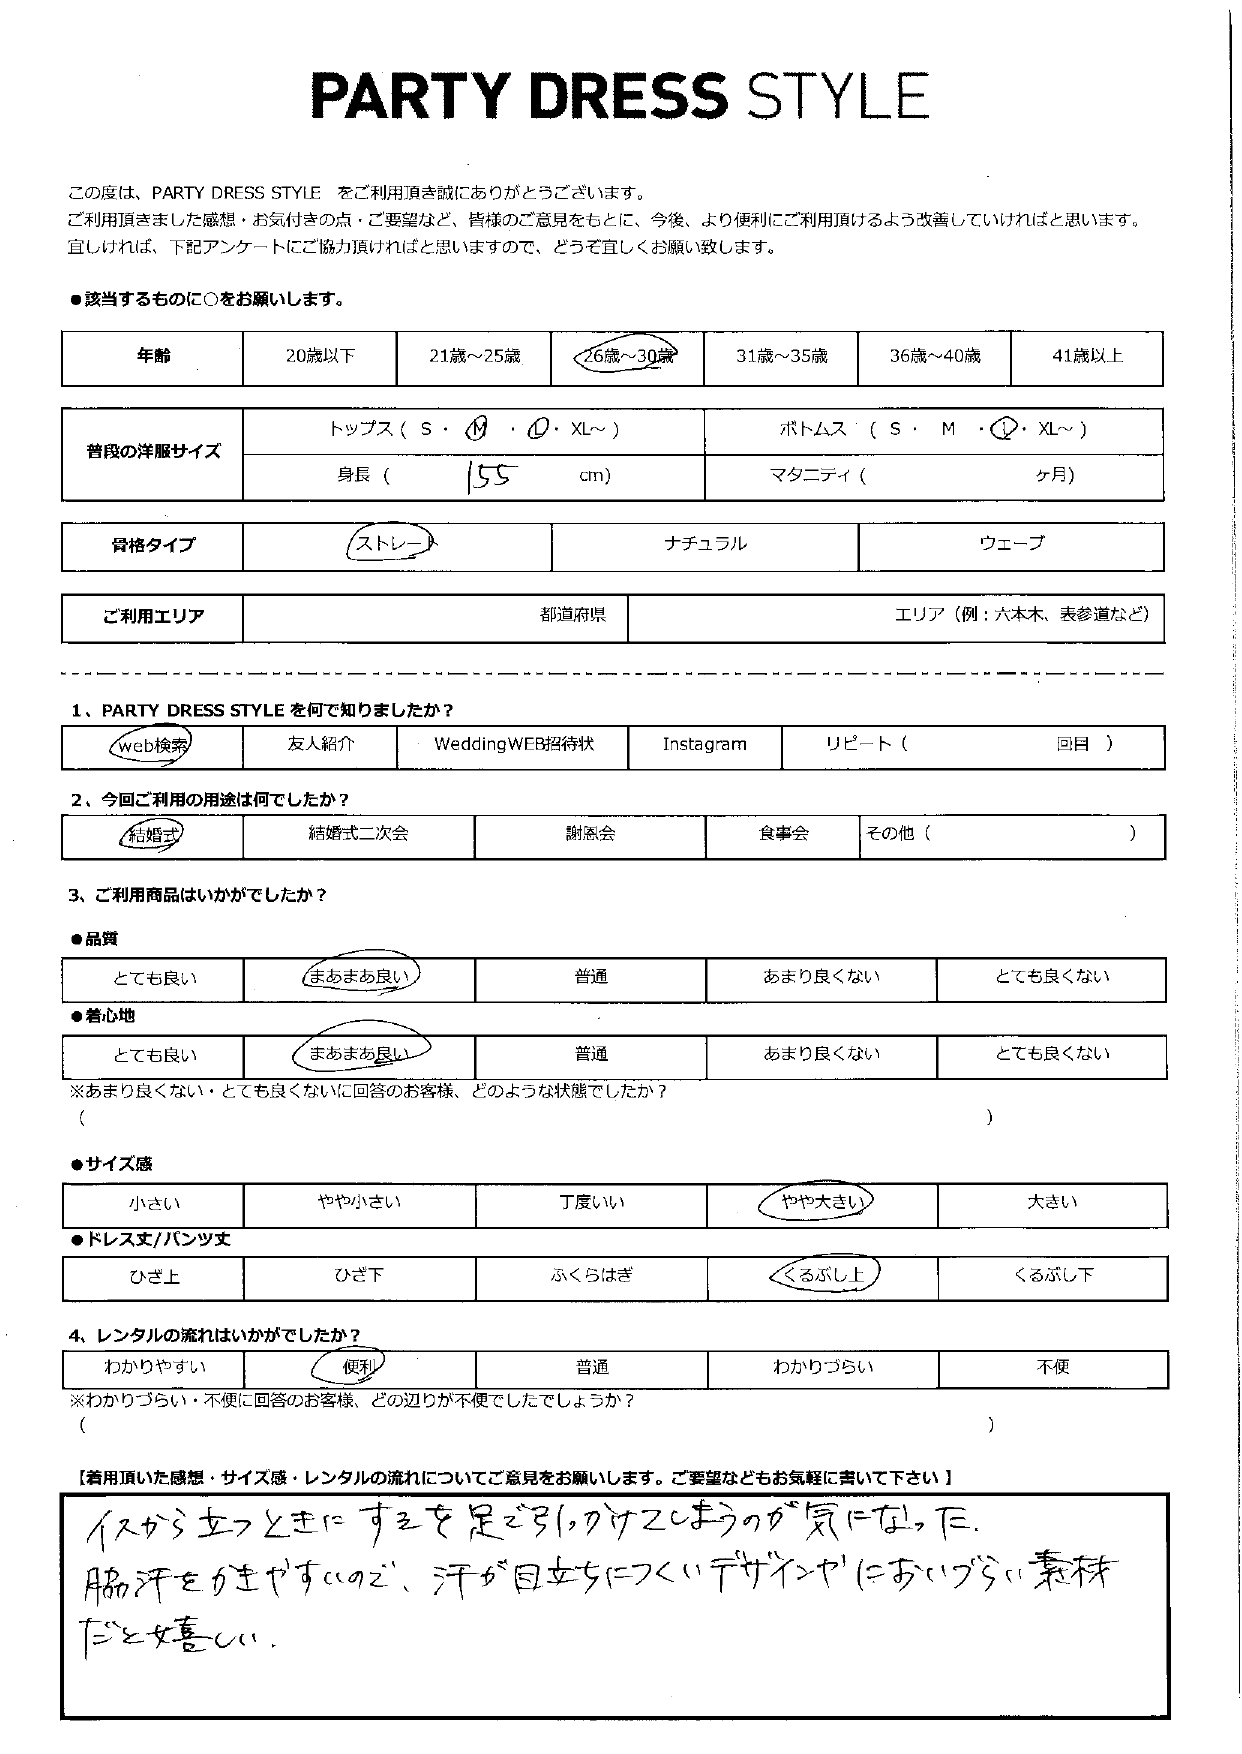 PARTY DRESS STYLE
この度は、PARTY DRESS STYLE をご利用頂き誠にありがとうございます。
ご利用頂きました感想・お気付きの点・ご要望など、皆様のご意見をもとに、今後、より便利にご利用頂けるよう改善していければと思います。
宜しければ、下記アンケートにご協力頂ければと思いますので、どうぞ宜しくお願い致します。
●該当するものに○をお願いします。
年齢 20歳以下 21歳～25歳 26歳～30歳 31歳～35歳 36歳～40歳 41歳以上
普段の洋服サイズ
トップス ( S ・ M ・ L ・ XL～ ) ボトムス ( S ・ M ・ L ・ XL～ )
身長 ( 155 cm) マタニティ ( ヶ月)
骨格タイプ ストレート ナチュラル ウェーブ
ご利用エリア 都道府県 エリア（例：六本木、表参道など）
1、PARTY DRESS STYLE を何で知りましたか？
web検索 友人紹介 WeddingWEB招待状 Instagram リピート ( 回目 )
2、今回ご利用の用途は何でしたか？
結婚式 結婚式二次会 謝恩会 食事会 その他 ( )
3、ご利用商品はいかがでしたか？
●品質
とても良い まあまあ良い 普通 あまり良くない とても良くない
●着心地
とても良い まあまあ良い 普通 あまり良くない とても良くない
※あまり良くない・とても良くないに回答のお客様、どのような状態でしたか？
( )
●サイズ感
小さい やや小さい 丁度いい やや大きい 大きい
●ドレス丈/パンツ丈
ひざ上 ひざ下 ふくらはぎ くるぶし上 くるぶし下
4、レンタルの流れはいかがでしたか？
わかりやすい 便利 普通 わかりづらい 不便
※わかりづらい・不便に回答のお客様、どの辺りが不便でしたでしょうか？
( )
【着用頂いた感想・サイズ感・レンタルの流れについてご意見をお願いします。ご要望などもお気軽に書いて下さい】
イスから立つときにすそを足で引っかけてしまうのが気になった.
脇汗をかきやすいので、汗が目立ちにつくいデザインやにおいづらい素材
だと嬉しい.